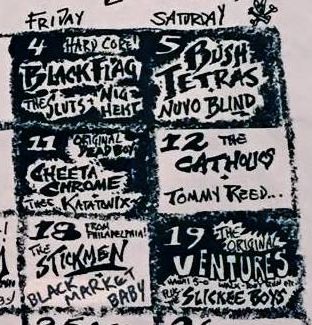 FRIDAY SATURDAY
4 HARD CORE!
BLACK FLAG
THE SLUTS NIG HEIST
5 BUSH
TETRAS
NUVO BLIND
11 ORIGINAL
DEAD BOY
CHEETA
CHROME
THEE KATATONIX
12 THE
CATHOLICS
TOMMY REED...
18 FROM
PHILADELPHIA!
THE
STICKMEN
BLACK MARKET
BABY
19 THE
ORIGINAL
VENTURES
HAWAII 5-0
SLICKEE BOYS